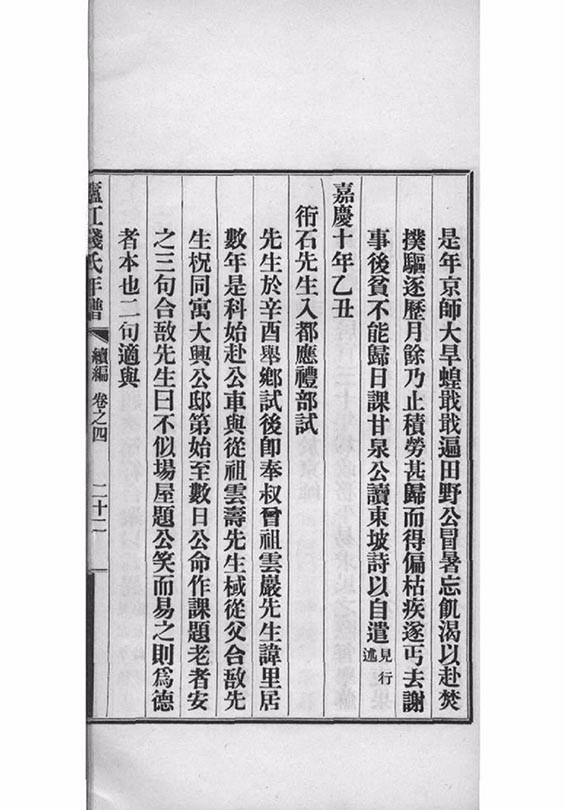 是年京師大旱蝗戢戢遍田野公冒暑忘飢渴以赴焚
撲驅逐歷月餘乃止積勞甚歸而得偏枯疾遂丐去謝
事後貧不能歸日課甘泉公讀東坡詩以自遣見行述
嘉慶十年乙丑
衎石先生入都應禮部試
先生於辛酉舉鄉試後卽奉叔曾祖雲巖先生諱里居
數年是科始赴公車與從祖雲壽先生棫從父合敔先
生柷同寓大興公邸第始至數日公命作課題老者安
之三句合敔先生曰不似場屋題公笑而易之則爲德
者本也二句適與
廬江錢氏年譜
續編
卷之四
二十二